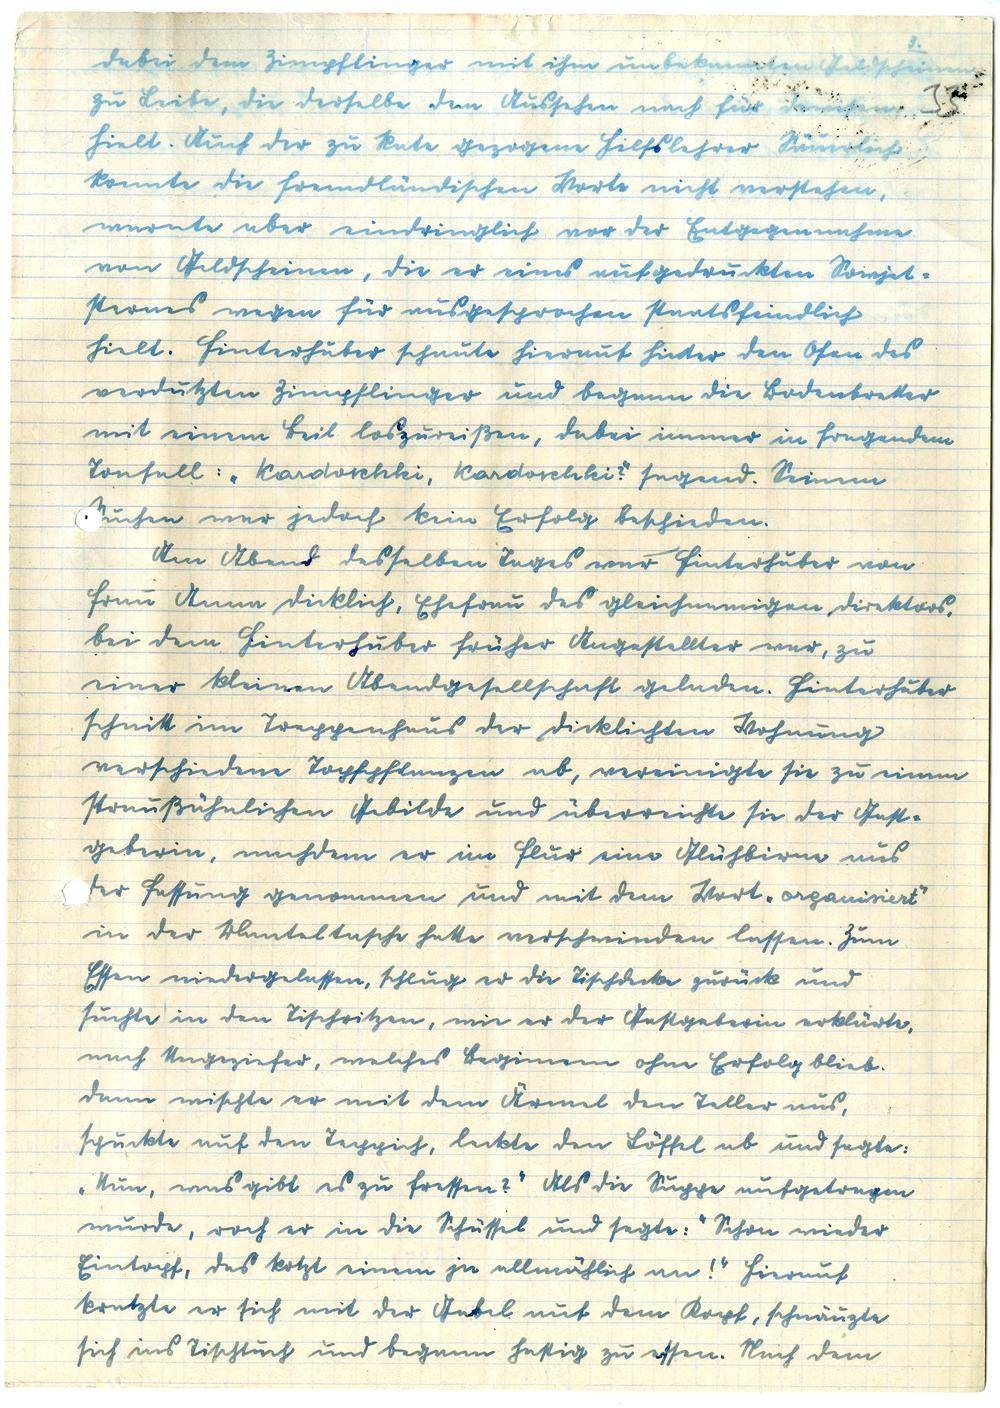 3.
33
dabei dem Zimpflinger mit ihm unbekannten Geldscheinen
zu Leibe, die derselbe dem Aussehen nach für
hielt. Auch der zu Rate gezogene Hilfslehrer Säuerlich
konnte die fremdländischen Worte nicht verstehen,
warnte aber eindringlich vor der Entgegennahme
von Geldscheinen, die er eines aufgedruckten Sowjet-
sternes wegen für ausgesprochen staatsfeindlich
hielt. Hinterhuber schaute hierauf hinter den Ofen des
verdutzten Zimpflinger und begann die Bodenbretter
mit einem Beil loszureißen, dabei immer in fragendem
Tonfall: „Kardoschki, Kardoschki?" sagend. Seinem
Suchen war jedoch kein Erfolg beschieden.
Am Abend desselben Tages war Hinterhuber von
Frau Anna Dicklich, Ehefrau des gleichnamigen Direktors,
bei dem Hinterhuber früher Angestellter war, zu
einer kleinen Abendgesellschaft geladen. Hinterhuber
schnitt im Treppenhaus der dicklichten Wohnung
verschiedene Topfpflanzen ab, vereinigte sie zu einem
straußähnlichen Gebilde und überreichte sie der Gast-
geberin, nachdem er im Flur eine Glühbirne aus
der Fassung genommen und mit dem Wort „organisiert"
in der Manteltasche hatte verschwinden lassen. Zum
Essen niedergelassen, schlug er die Tischdecke zurück und
suchte in den Tischritzen, wie er der Gastgeberin erklärte,
nach Ungeziefer, welches Beginnen ohne Erfolg blieb.
Dann wischte er mit dem Ärmel den Teller aus,
spuckte auf den Teppich, leckte den Löffel ab und sagte:
„Nun, was gibt es zu fressen?" Als die Suppe aufgetragen
wurde, roch er in die Schüssel und sagte: "Schon wieder
Eintopf, das kotzt einem ja allmählich an!" Hierauf
kratzte er sich mit der Gabel auf dem Kopf, schnäuzte
sich ins Tischtuch und begann hastig zu essen. Nach dem